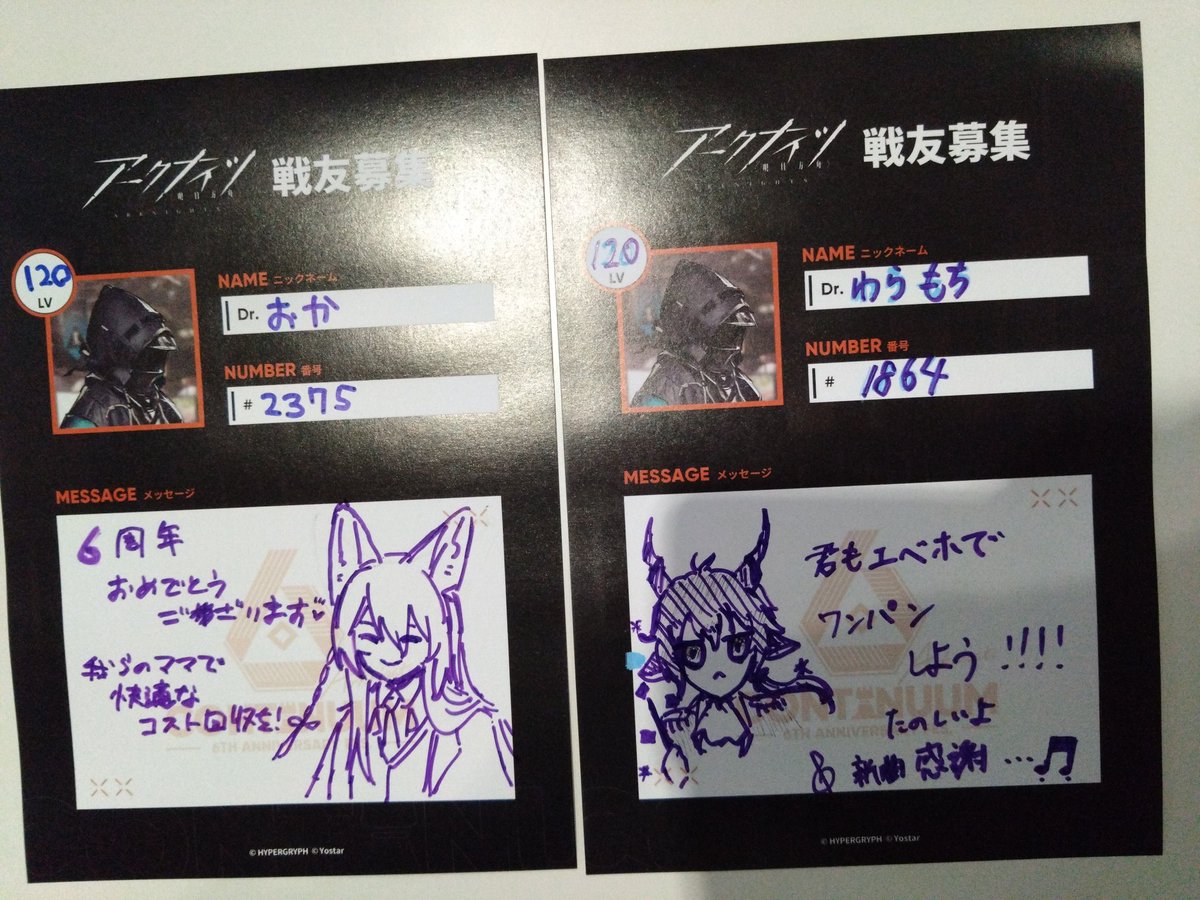 アークナイツ 戦友募集
明日方舟
ARKNIGHTS
120
LV
NAME ニックネーム
Dr. おか
NUMBER 番号
# 2375
MESSAGE メッセージ
6周年
おめでとう
ございます♡
我らのママで
快適な
コスト回収を!
CONTINUUM
6TH ANNIVERSARY
© HYPERGRYPH © Yostar
アークナイツ 戦友募集
明日方舟
ARKNIGHTS
120
LV
NAME ニックネーム
Dr. わらもち
NUMBER 番号
# 1864
MESSAGE メッセージ
君もエベホで
ワンパン
しよう!!!!
たのしいよ
新曲感謝…♫
CONTINUUM
6TH ANNIVERSARY FES.
© HYPERGRYPH © Yostar